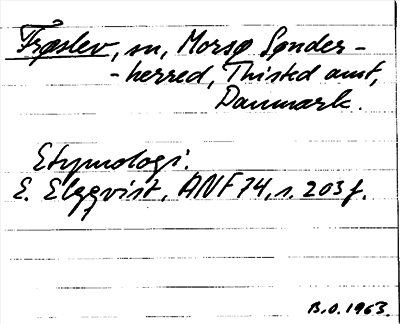 Frøslev, sn, Morsø Sønder-
-herred, Thisted amt,
Danmark.
Etymologi.
E. Elgqvist, ANF 74, s. 203 f.
B.O. 1963.